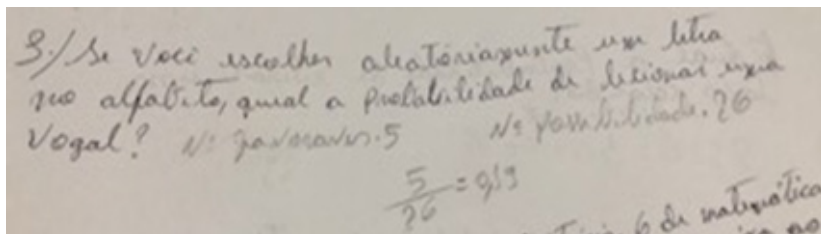 3./ Se você escolher aleatóriamente uma letra
no alfabeto, qual a Probabilidade de
Vogal? Nº favoraves. 5 Nº possibilidade. 26
5/26 = 0,19
6 de matemática